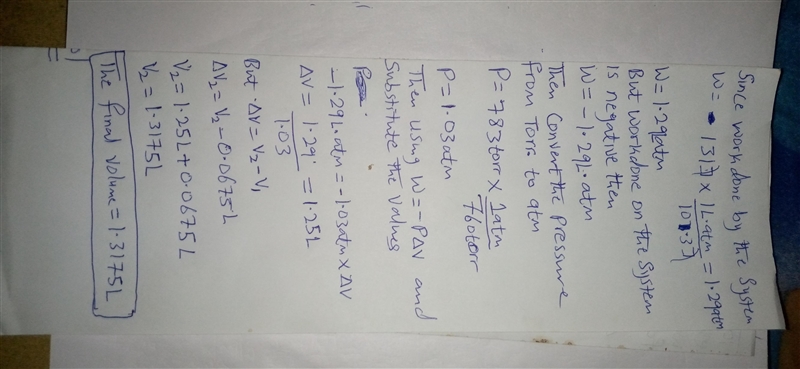 Since workdone by the System
W = 131J × 1L.atm = 1.29atm
101.3J
W = 1.29latm
But workdone on the System
is negative then
W = -1.29L.atm
Then Convert the pressure
from Torr to atm
P = 783torr × 1atm
760torr
P = 1.03atm
Then using W = -PΔV and
Substitute the values
-1.29L.atm = -1.03atm × ΔV
ΔV = 1.29 = 1.25L
1.03
But ΔV = V2 - V1
ΔV2 = V2 - 0.0675L
V2 = 1.25L + 0.0675L
V2 = 1.3175L
The final volume = 1.3175L